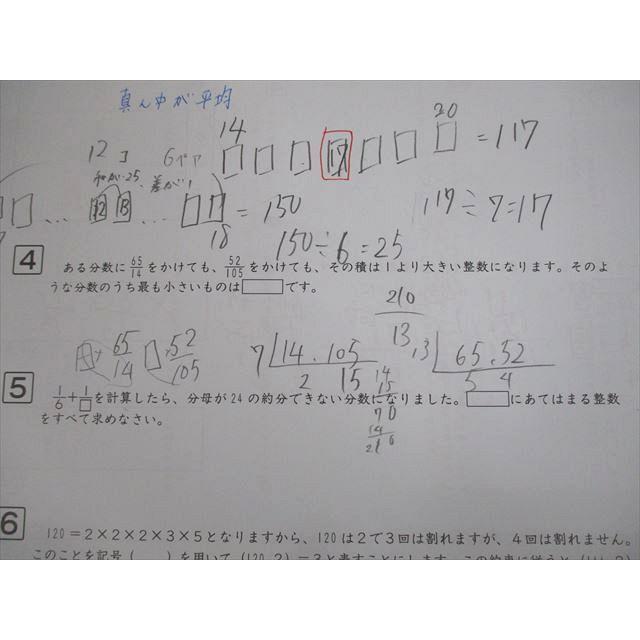 真ん中が平均
14 20
12コ 6ペア □ □ □ 17 □ □ □ =117
和が25、差が1
… 12 13 … □ □ =150 117÷7=17
18 150÷6=25
4 ある分数に65/14をかけても、52/105をかけても、その積は1より大きい整数になります。そのよ
うな分数のうち最も小さいものは□です。
210/13
65/14 □×52/105 7 14.105 13 65.52
2 15 5 4
14
15
5 1/6+1/□を計算したら、分母が24の約分できない分数になりました。□にあてはまる整数
をすべて求めなさい。
70
14
210
6 120=2×2×2×3×5となりますから、120は2で3回は割れますが、4回は割れません。
このことを記号( , )を用いて(120,2)=3と表すことにします。この約束に従うと